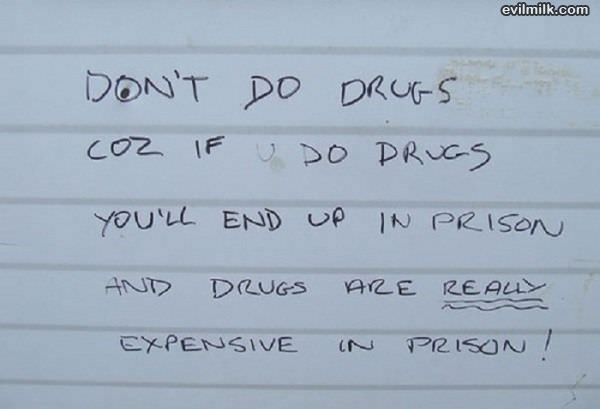 evilmilk.com
DON'T DO DRUGS
COZ IF U DO DRUGS
YOU'LL END UP IN PRISON
AND DRUGS ARE REALLY
EXPENSIVE IN PRISON!